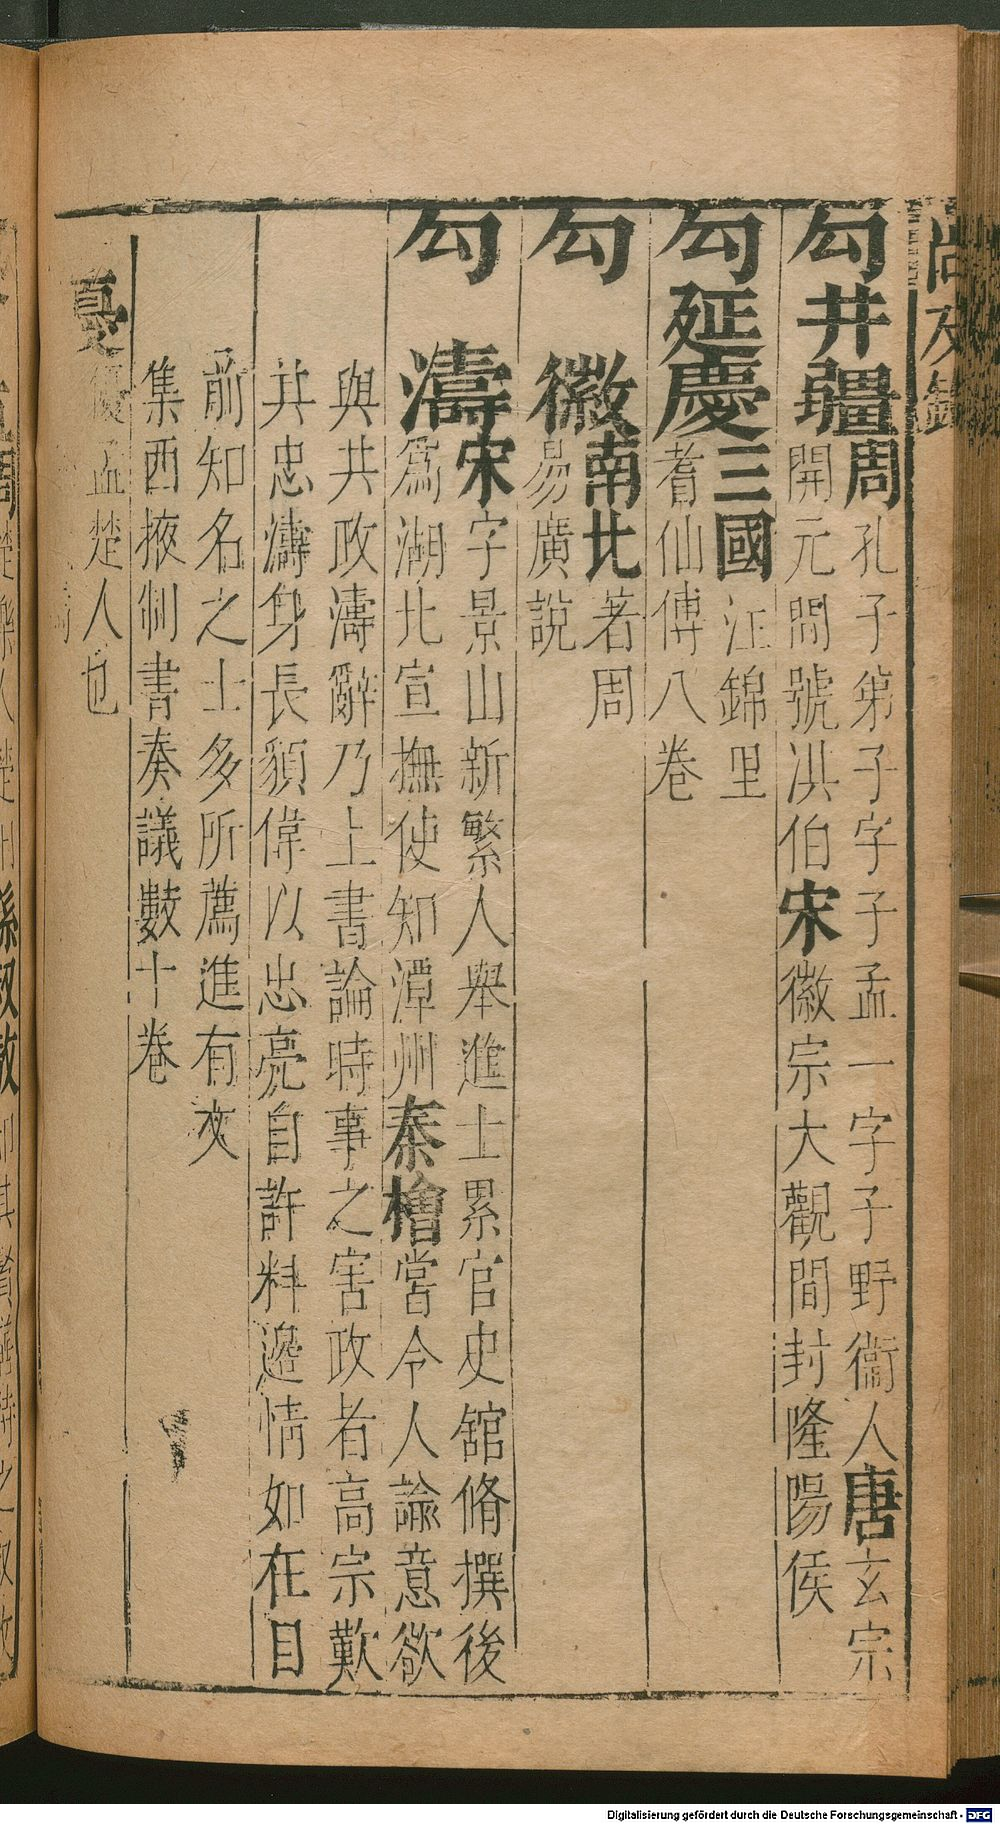 尚友錄
勾井疆周孔子弟子字子孟一字子野衞人唐玄宗
開元間號淇伯宋徽宗大觀間封隆陽侯
勾延慶三國汪錦里
耆仙傅八卷
勾徽南北著周
易廣說
勾濤宋字景山新繁人舉進士累官史舘脩撰後
爲湖北宣撫使知潭州秦檜嘗令人諭意欲
與共政濤辭乃上書論時事之害政者高宗歎
其忠濤身長貌偉以忠亮自許料邊情如在目
前知名之士多所薦進有文
集西掖制書奏議數十卷
憂優孟楚人也
Digitalisierung gefördert durch die Deutsche Forschungsgemeinschaft - DFG